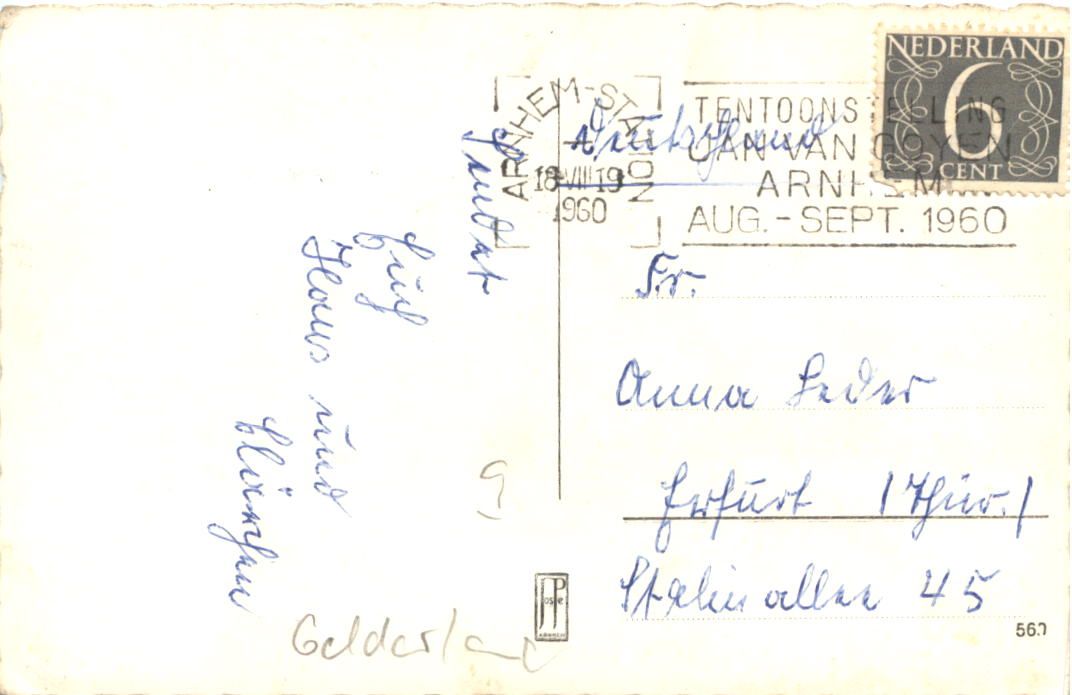 NEDERLAND
6
CENT
ARNHEM-STATION
18 VIII 19
1960
TENTOONSTELLING
JAN VAN GOYEN
ARNHEM
AUG.-SEPT. 1960
Deutschland
Fr.
Anna Leder
Erfurt (Thür.)
Stalinallee 45
Sendet
Euch
Hans und
Klärchen
Gelderland
JosPé
ARNHEM
560